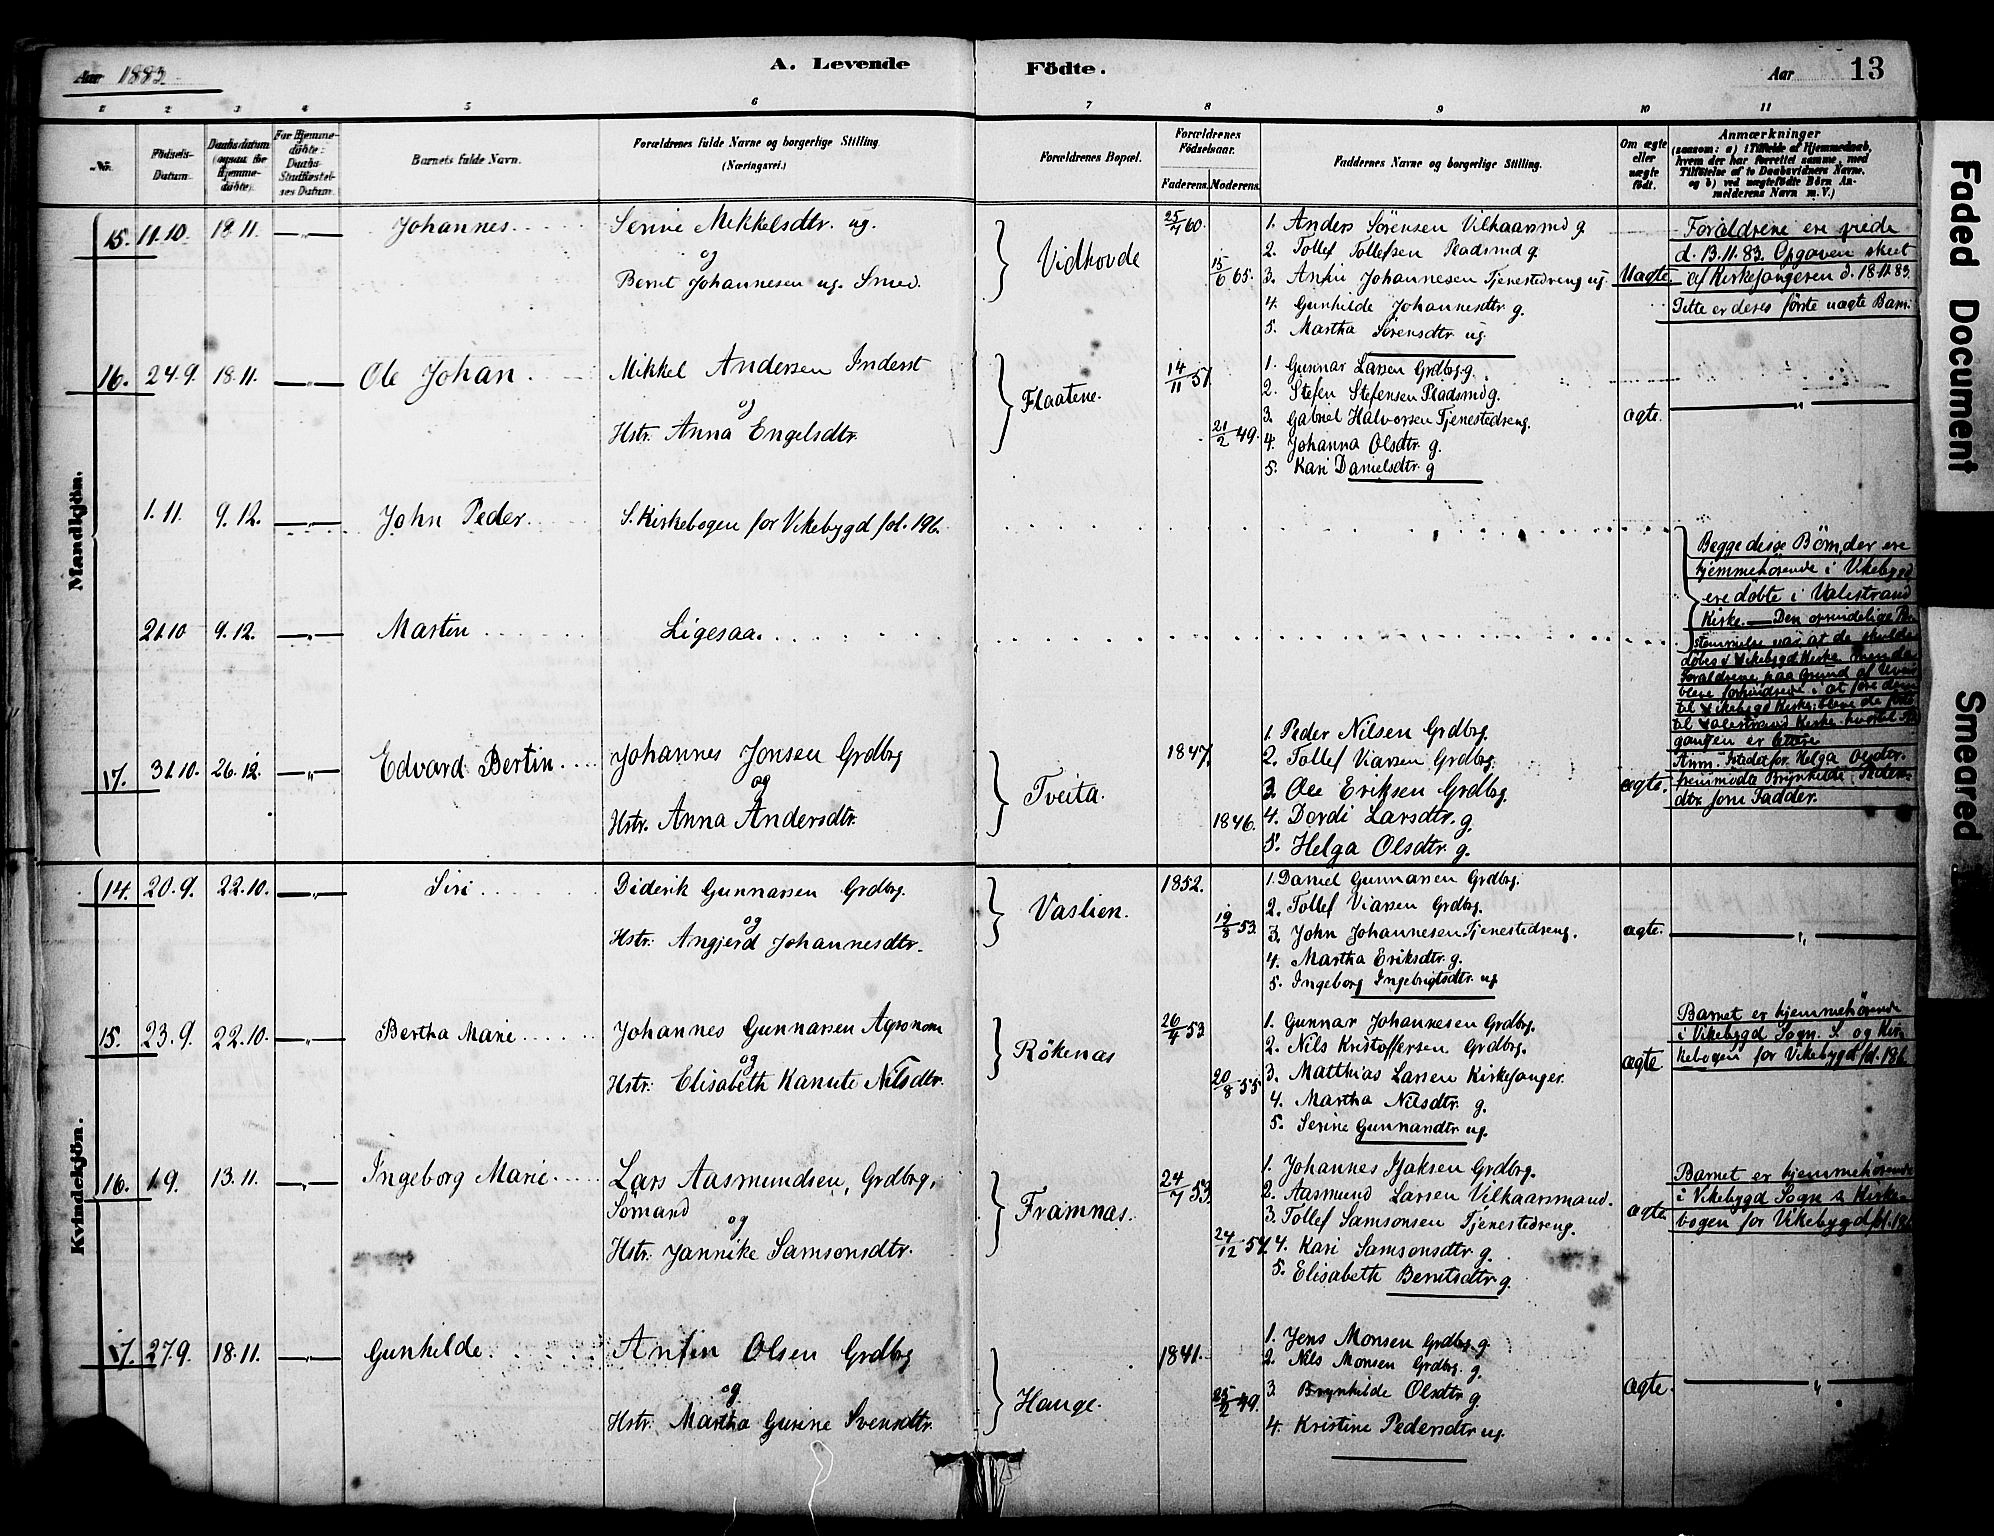 Aar 1883.
A. Levende Födte.
Aar 13
1 2 3 4 5 6 7 8 9 10 11
No.
Födsels-Datum.
Daabsdatum (ogsaa for Hjemmedöbte).
For Hjemmedöbte: Daabs-Stadfæstelses Datum.
Barnets fulde Navn.
Forældrenes fulde Navne og borgerlige Stilling (Næringsvei.)
Forældrenes Bopæl.
Forældrenes Födselsaar.
Faderens. Moderens.
Faddernes Navne og borgerlige Stilling.
Om ægte eller uægte födt.
Anmærkninger
(saasom: a) i Tilfælde af Hjemmedaab, hvem der har forrettet samme, med Tilföielse af to Daabsvidners Navne, og b) ved uægtefödte Börn Anmelderens Navn m. V.)
Mandkjön.
15. 11.10 18.11. —„— Johannes.
Serine Mikkelsdtr. ug.
og
Bernt Johannesen ug. Smed.
Vidhovde
25/4 60.
15/6 65.
1. Anders Sörensen Vilkaarsmd g.
2. Tollef Tollefsen Pladsmd g.
3. Anfin Johannesen Tjenestedreng ug.
4. Gunhilde Johannesdtr g.
5. Martha Sörensdtr ug.
Uægte
Forældrene ere viede
d. 13.11.83. Opgaven skeet
af Kirkesangeren d. 18.11.83.
Dette er deres förste uægte Barn.
16. 24.9. 18.11. —„— Ole Johan.
Mikkel Andersen Inderst
og
Hstr. Anna Engelsdtr.
Flaatene.
14/11 51.
21/2 49.
1. Gunnar Larsen Grdbrg. g.
2. Stefen Stefensen Pladsmd g.
3. Gabriel Halvorsen Tjenestedreng.
4. Johanna Olsdtr. g.
5. Kari Danielsdtr. g
ægte.
—„—
1.11. 9.12. —„— John Peder.
S. Kirkebogen for Vikebygd fol. 196.
21.10 9.12. —„— Martin
Ligesaa.
Begge disse Börn, der ere
hjemmehörende i Vikebygd
ere döbte i Valestrand
Kirke. — Den oprindelige Be-
stemmelse var at de skulde
döbes i Vikebygd Kirke men da
Forældrene paa Grund af Uveir
bleve forhindrede i at före dem
til Vikebygd Kirke, bleve de förte
til Valestrand Kirke hvortil
gangen er lettere
17. 31.10. 26.12. —„— Edvard Bertin.
Johannes Jonsen Grdbrg
og
Hstr. Anna Andersdtr.
Tveita.
1847.
1846.
1. Peder Nilsen Grdbrg.
2. Tollef Viarsen Grdbrg.
3. Ole Eriksen Grdbrg.
4. Dordi Larsdtr. g.
5. Helga Olsdtr. g.
ægte.
Anm. Istedetfor Helga Olsdtr.
fremmödte Brynhilde Peders-
dtr som Fadder.
Kvindekjön.
14. 20.9. 22.10. —„— Siri
Diderik Gunnarsen Grdbrg.
og
Hstr: Angjerd Johannesdtr.
Vaslien.
1852.
19/8 53.
1. Daniel Gunnarsen Grdbrg.
2. Tollef Viarsen Grdbrg.
3. John Johannesen Tjenestedreng.
4. Martha Eriksdtr. g.
5. Ingeborg Ingebrigtsdtr. ug
ægte.
—„—
15. 23.9. 22.10. —„— Bertha Marie
Johannes Gunnarsen Agronom
og
Hstr: Elisabeth Kanute Nilsdtr.
Rökenæs
26/4 53
20/8 55.
1. Gunnar Johannesen Grdbrg.
2. Nils Kristoffersen Grdbrg.
3. Matthias Larsen Kirkesanger.
4. Martha Nilsdtr. g.
5. Serine Gunnarsdtr ug.
ægte
Barnet er hjemmehörende
i Vikebygd Sogn. S. og Kir-
kebogen for Vikebygd fol. 186
16. 1.9. 13.11. —„— Ingeborg Marie
Lars Aasmundsen, Grdbrg,
Sömand
og
Hstr: Jannike Samsonsdtr.
Framnæs.
24/7 53.
24/12 54.
1. Johannes Isaksen Grdbrg.
2. Aasmund Larsen Vilkaarsmand.
3. Tollef Samsonsen Tjenestedreng.
4. Kari Samsonsdtr g.
5. Elisabeth Berntsdtr. g.
ægte
Barnet er hjemmehörende
i Vikebygd Sogn s. Kirke-
bogen for Vikebygd fol. 186
17. 27.9. 18.11. —„— Gunhilde.
Anfin Olsen Grdbrg
og
Hstr. Martha Gurine Svensdtr.
Hauge.
1841.
25/2 49.
1. Jens Monsen Grdbrg. g.
2. Nils Monsen Grdbrg. g.
3. Brynhilde Olsdtr g.
4. Kristine Pedersdtr ug.
ægte.
—„—
Faded Document
Smeared